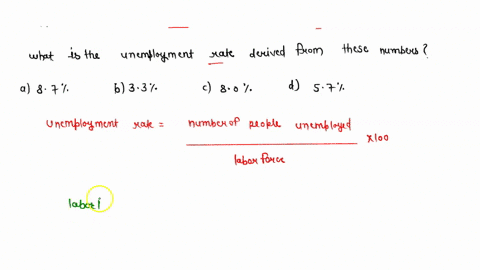 what is the unemployment rate derived from these numbers?
a) 8.7% b) 3.3% c) 8.0% d) 5.7%
unemployment rate = number of people unemployed ×100
labor force
labor f